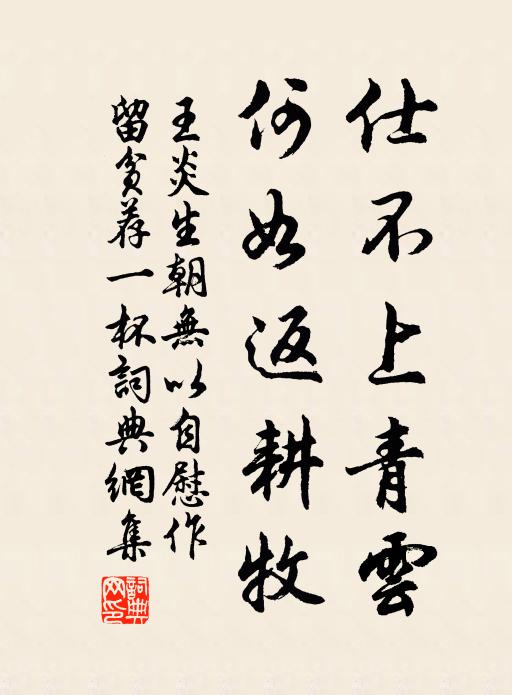 仕不上青雲
何如返耕牧
王炎生朝無以自慰作
留貧荐一杯詞典網集